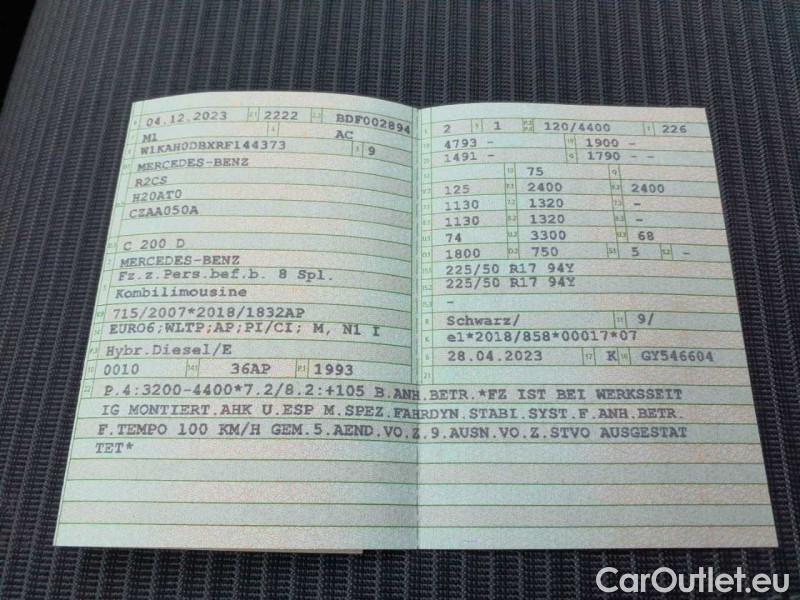 04.12.2023 2.1 2222 2.2 BDF002894
M1 AC
W1KAH0DBXRF144373 3 9
MERCEDES-BENZ
R2CS
H20AT0
CZAA050A
C 200 D
MERCEDES-BENZ
Fz.z.Pers.bef.b. 8 Spl.
Kombilimousine
715/2007*2018/1832AP
EURO6;WLTP;AP;PI/CI; M, N1 I
Hybr.Diesel/E
0010 14.1 36AP P.1 1993
2 1 120/4400 226
4793 - 1900 -
1491 - 1790 - -
75
125 2400 2400
1130 1320 -
1130 1320 -
74 3300 68
1800 750 5 -
225/50 R17 94Y
225/50 R17 94Y
-
Schwarz/ 9/
e1*2018/858*00017*07
28.04.2023 17 K 16 GY546604
22 P.4:3200-4400*7.2/8.2:+105 B.ANH.BETR.*FZ IST BEI WERKSSEIT
IG MONTIERT.AHK U.ESP M.SPEZ.FAHRDYN.STABI.SYST.F.ANH.BETR.
F.TEMPO 100 KM/H GEM.5.AEND.VO.Z.9.AUSN.VO.Z.STVO AUSGESTAT
TET*
CarOutlet.eu